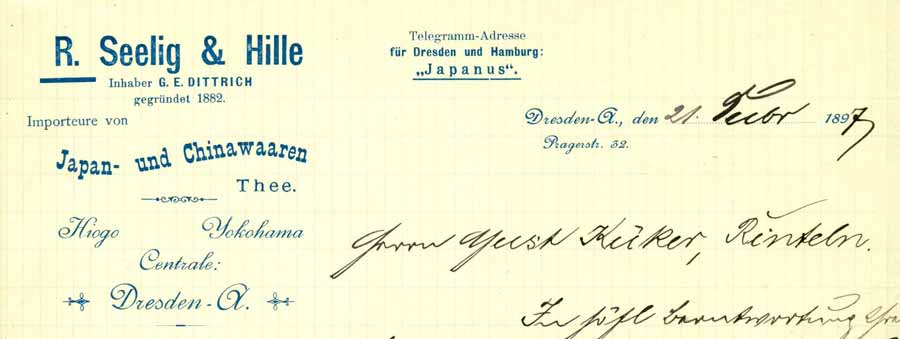 R. Seelig & Hille
Inhaber G. E. DITTRICH
gegründet 1882.
Importeure von
Japan- und Chinawaaren
Thee.
Hiogo Yokohama
Centrale:
Dresden-A.
Telegramm-Adresse
für Dresden und Hamburg:
„Japanus“.
Dresden-A., den 21. Febr 1897
Pragerstr. 32.
Herrn Küker, Rinteln.
In höfl Beantwortung